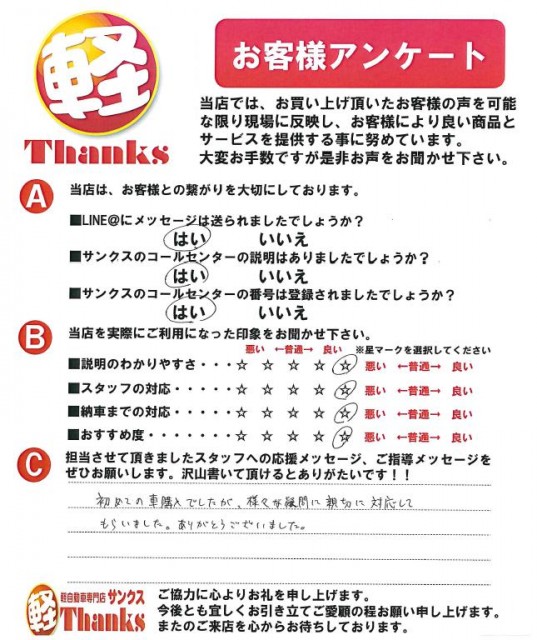 軽
Thanks
お客様アンケート
当店では、お買い上げ頂いたお客様の声を可能
な限り現場に反映し、お客様により良い商品と
サービスを提供する事に努めています。
大変お手数ですが是非お声をお聞かせ下さい。
A 当店は、お客様との繋がりを大切にしております。
■LINE@にメッセージは送られましたでしょうか?
はい いいえ
■サンクスのコールセンターの説明はありましたでしょうか?
はい いいえ
■サンクスのコールセンターの番号は登録されましたでしょうか?
はい いいえ
B 当店を実際にご利用になった印象をお聞かせ下さい。
悪い ←普通→ 良い ※星マークを選択してください
■説明のわかりやすさ・・・・☆ ☆ ☆ ☆ ☆ 悪い ←普通→ 良い
■スタッフの対応・・・・・・☆ ☆ ☆ ☆ ☆ 悪い ←普通→ 良い
■納車までの対応・・・・・・☆ ☆ ☆ ☆ ☆ 悪い ←普通→ 良い
■おすすめ度・・・・・・・・☆ ☆ ☆ ☆ ☆ 悪い ←普通→ 良い
C 担当させて頂きましたスタッフへの応援メッセージ、ご指導メッセージを
ぜひお願いします。沢山書いて頂けるとありがたいです!!
初めての車購入でしたが、様々な疑問に親切に対応して
もらいました。ありがとうございました。
軽 軽自動車専門店 サンクス
Thanks
ご協力に心よりお礼を申し上げます。
今後とも宜しくお引き立てご愛顧の程お願い申し上げます。
またのご来店を心からお待ちしております。